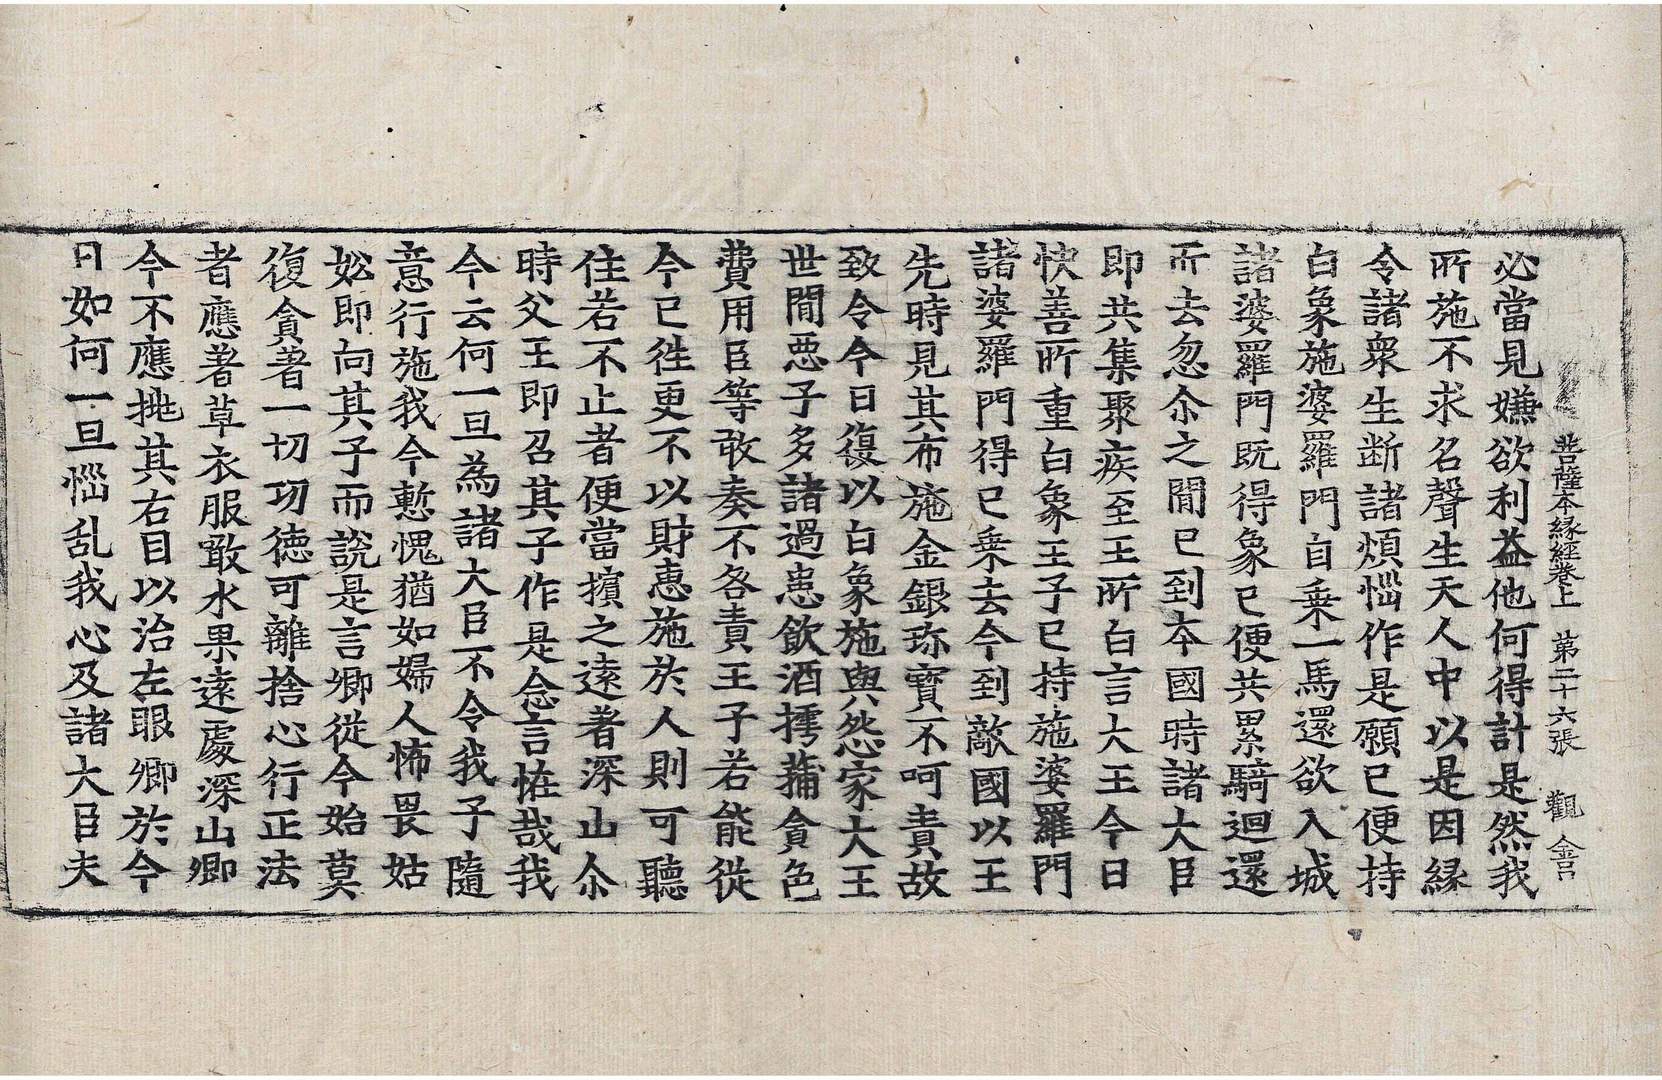 菩薩本縁經卷上 第二十六張 觀 金言
必當見嫌欲利益他何得計是然我
所施不求名聲生天人中以是因縁
令諸衆生断諸煩惱作是願已便持
白象施婆羅門自乗一馬還欲入城
諸婆羅門既得象已便共累騎迴還
而去忽尒之閒已到本國時諸大臣
即共集聚疾至王所白言大王今日
快善所重白象王子已持施婆羅門
諸婆羅門得已乗去今到敵國以王
先時見其布施金銀珎寶不呵責故
致令今日復以白象施與怨家大王
世閒惡子多諸過患飮酒摴蒱貪色
費用臣等敢奏不各責王子若能從
今已徃更不以財恵施於人則可聽
住若不止者便當擯之遠著深山尒
時父王即召其子作是念言恠哉我
今云何一旦為諸大臣不令我子隨
意行施我今慙愧猶如婦人怖畏姑
妐即向其子而說是言卿從今始莫
復貪著一切功徳可離捨心行正法
者應著草衣服敢水果遠處深山卿
今不應挑其右目以治左眼卿於今
日如何一旦惱乱我心及諸大臣夫